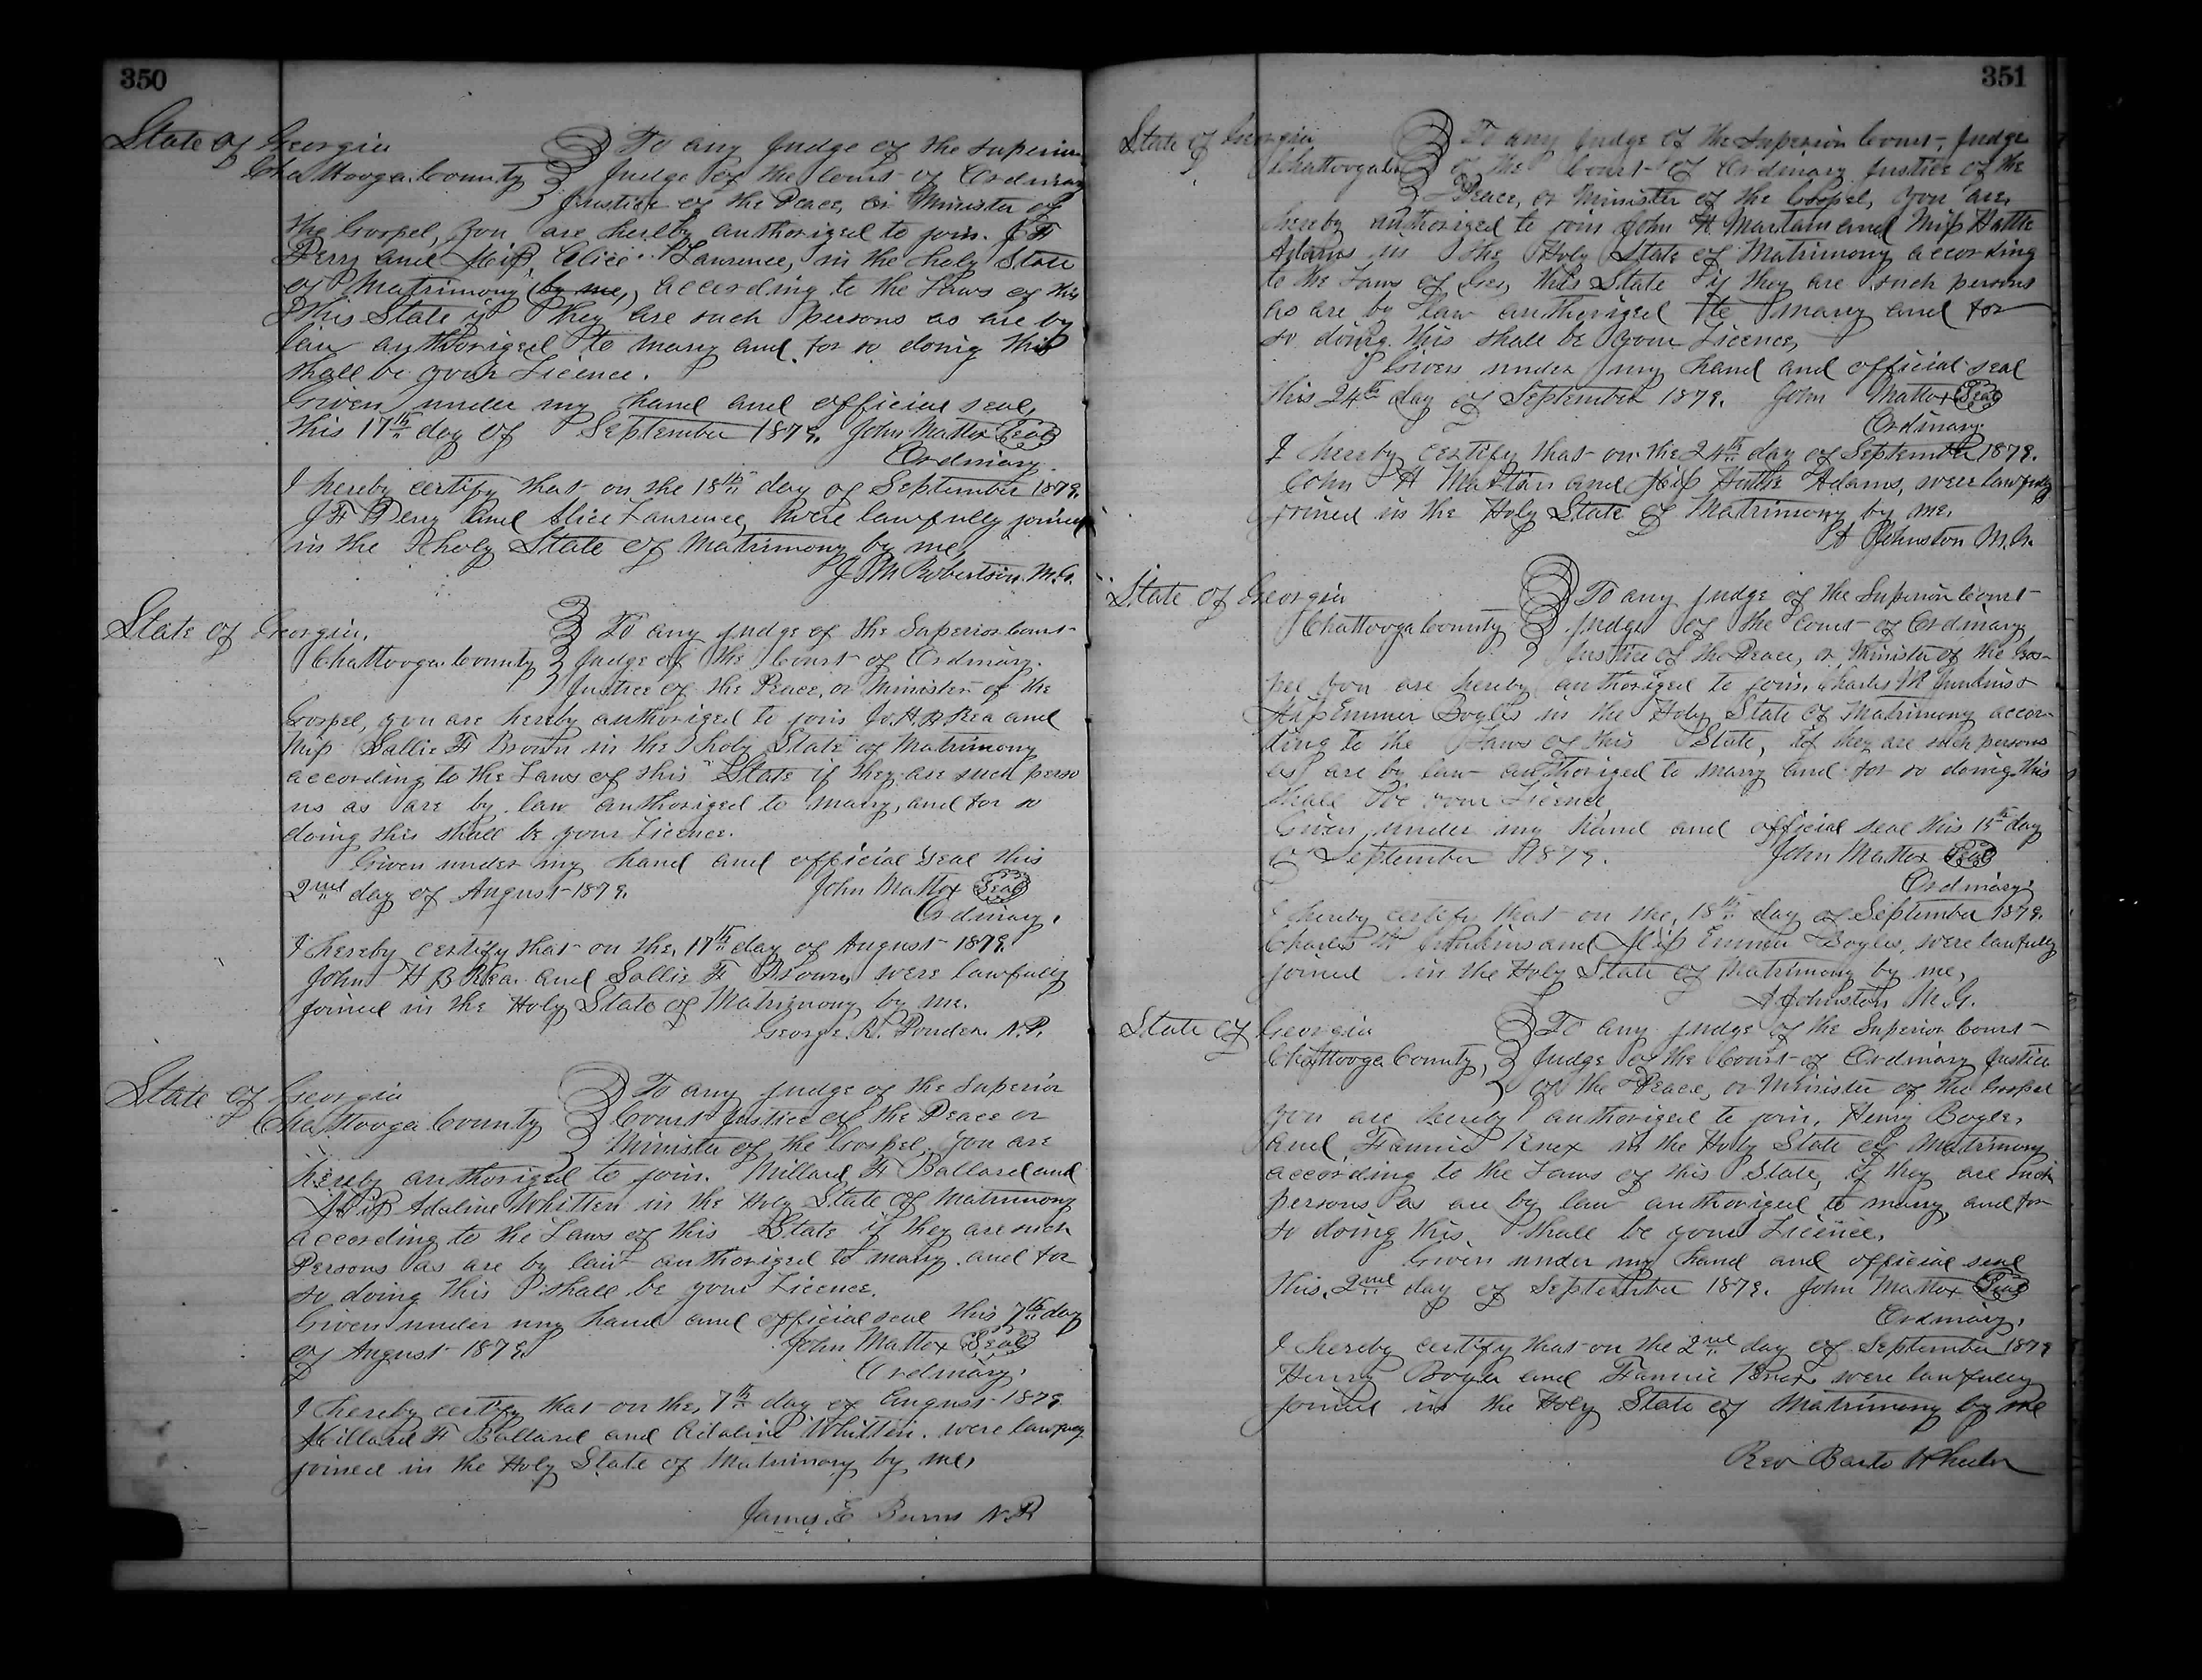 350
State of Georgia
Chattooga County
To any Judge of the Superior
Judge of the Court of Ordinary
Justice of the Peace, or Minister of
the Gospel, you are hereby authorized to join. J F
Perry and Miss Alice Laurence, in the holy State
of Matrimony (by me,) according to the Laws of this
This State if they are such persons as are by
law authorized to marry and for so doing this
shall be your Licence.
Given under my hand and official seal,
this 17th day of September 1879. John Mattox Seal
Ordinary.
I hereby certify that on the 18th day of September 1879.
J F Perry and Alice Laurence, were lawfully joined
in the holy State of Matrimony by me,
J M Robertson. M.G.
State of Georgia,
Chattooga County
To any Judge of the Superior Court
Judge of the Court of Ordinary.
Justice of the Peace, or Minister of the
Gospel, you are hereby authorized to join Jo. H. B Rea and
Miss Sallie F Brown in the holy State of Matrimony
according to the Laws of this State if they are such perso
ns as are by law authorized to marry, and for so
doing this shall be your Licence.
Given under my hand and official seal this
2nd day of August 1879. John Mattox Seal
Ordinary.
I hereby certify that on the, 17th day of August 1879.
John H B Rea. and Sallie F Brown, were lawfully
joined in the Holy State of Matrimony by me.
George. R. Ponder. N.P.
State of Georgia
Chattooga County
To any Judge of the Superior
Court Justice of the Peace or
Minister of the Gospel, you are
hereby authorized to join. Millard F Ballard and
Miss Adaline Whitten in the Holy State of Matrimony
according to the Laws of this State if they are such
Persons as are by law authorized to marry. and for
so doing this shall be your Licence.
Given under my hand and official seal this 7th day
of August 1879. John Mattox Seal
Ordinary.
I hereby certify that on the, 7th day of August 1879
Millard F Ballard and Adaline Whitten. were lawfuly
joined in the Holy State of Matrimony by me,
James. E Burns N.P.
351
State of Georgia,
Chattooga Co
To any Judge of the Superior Court, Judge
of the Court of Ordinary Justice of the
Peace, or Minister of the Gospel, you are,
hereby authorized to join John H. Martain and Miss Hattie
Adams in the Holy State of Matrimony according
to the Laws of this State if they are such persons
as are by law authorized to marry and for
so doing. this shall be your Licence,
Given under my hand and official seal
this 24th day of September 1879. John Mattox Seal
Ordinary.
I hereby certify that on the 24th day of September 1879.
John H Martain and Miss Hattie Adams, were lawfuly
joined in the Holy State of Matrimony by me,
A Johnston M.G.
State of Georgia
Chattooga County
To any Judge of the Superior Court
Judge of the Court of Ordinary
Justice of the Peace, or Minister of the Gos-
pel you are hereby authorized to join. Charles M Junkins &
Miss Emmer Bogles in the Holy State of Matrimony accor-
ding to the Laws of this State, if they are such persons
as are by law authorized to marry and for so doing this
shall be your Licence,
Given under my hand and official seal this 15th day
of September 1879. John Mattox Seal
Ordinary.
I hereby certify that on the, 18th day of September 1879.
Charles M Junkins and Miss Emmer Bogles, were lawfully
joined in the Holy State of Matrimony by me,
A Johnston M.G.
State of Georgia
Chattooga County,
To any Judge of the Superior Court
Judge of the Court of Ordinary Justice
of the Peace, or Minister of the Gospel
you are hereby authorized to join, Henry Bogle,
and Fannie Knox in the Holy State of Matrimony
according to the Laws of this State, if they are such
persons as are by law authorized to marry, and for
so doing this shall be your Licence.
Given under my hand and official seal
this. 2nd day of September 1879. John Mattox Seal
Ordinary,
I hereby certify that on the 2nd day of September 1879
Henry Bogle and Fannie Knox were lawfully
joined in the Holy State of Matrimony by me
Rev Barto Wheeler